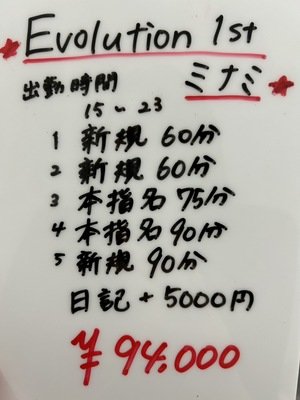 Evolution 1st
ミナミ
出勤時間
15〜23
1 新規 60分
2 新規 60分
3 本指名 75分
4 本指名 90分
5 新規 90分
日記 + 5000円
¥94.000